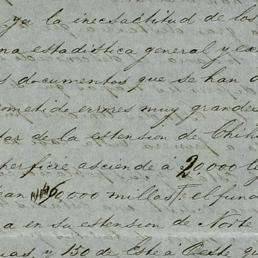 ya la inecsactitud de los
na estadistica general y esc
s documentos que se han
ometido errores muy grandes
tar de la estension de Chihu
perficie asciende á 20,000 le
ean 60,000 millas
a en su estension de Norte
uas, y 150 de Este á Oeste qu